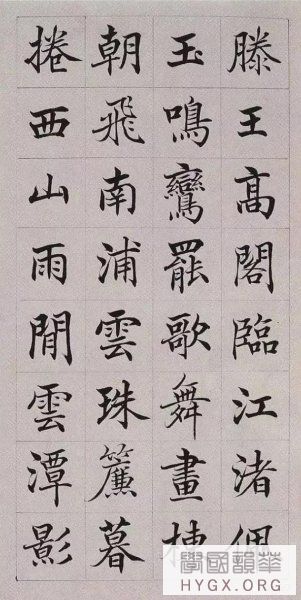 滕王高閣臨江渚佩
玉鳴鸞罷歌舞畫棟
朝飛南浦雲珠簾暮
捲西山雨閒雲潭影
華韻國學
HYGX.ORG